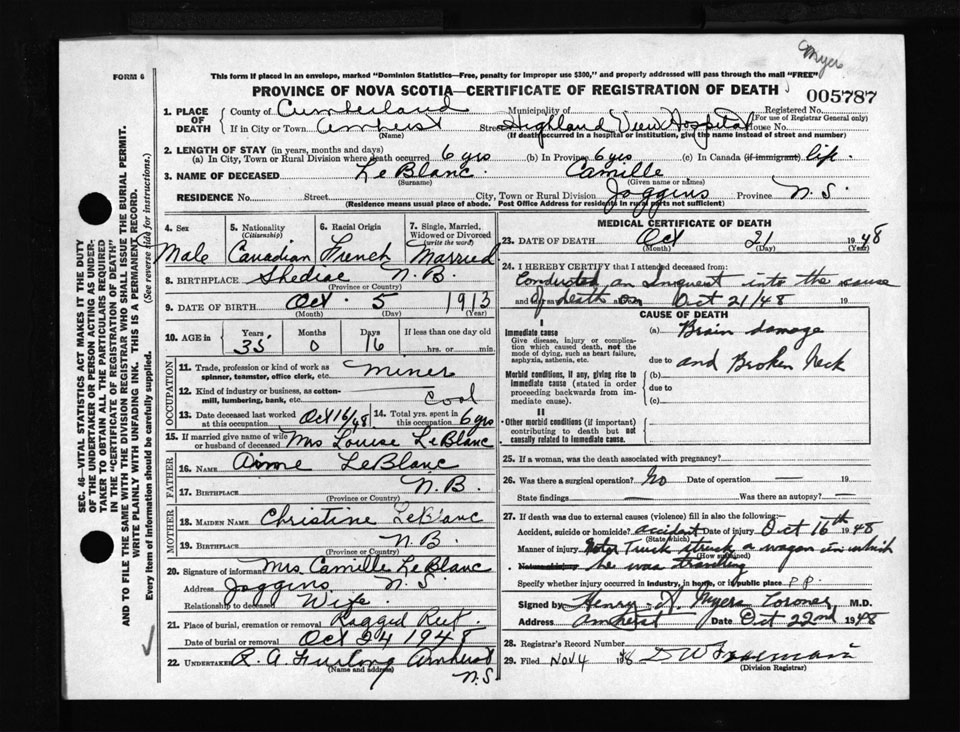 Myers
FORM 6
This form if placed in an envelope, marked "Dominion Statistics—Free, penalty for improper use $300," and properly addressed will pass through the mail "FREE"
PROVINCE OF NOVA SCOTIA—CERTIFICATE OF REGISTRATION OF DEATH
005787
1. PLACE OF DEATH
County of Cumberland Municipality of Registered No.
(For use of Registrar General only)
If in City or Town Amherst Street Highland View Hospital House No.
(Name) (If death occurred in a hospital or institution, give the name instead of street and number)
2. LENGTH OF STAY (in years, months and days)
(a) In City, Town or Rural Division where death occurred 6 yrs (b) In Province 6 yrs (c) In Canada (if immigrant) life.
3. NAME OF DECEASED LeBlanc. Camille
(Surname) (Given name or names)
RESIDENCE No. Street City, Town or Rural Division Joggins Province N.S.
(Residence means usual place of abode. Post Office Address for residents in rural parts not sufficient)
4. Sex
Male
5. Nationality
(Citizenship)
Canadian
6. Racial Origin
French
7. Single, Married, Widowed or Divorced
(write the word)
Married
8. BIRTHPLACE Shediac N.B.
(Province or Country)
9. DATE OF BIRTH Oct. 5 1913
(Month) (Day) (Year)
10. AGE in Years Months Days If less than one day old
35 0 16 hrs. or min.
OCCUPATION
11. Trade, profession or kind of work as spinner, teamster, office clerk, etc. miner
12. Kind of industry or business, as cotton-mill, lumbering, bank, etc. coal
13. Date deceased last worked at this occupation Oct 16/48
14. Total yrs. spent in this occupation 6 yrs
15. If married give name of wife or husband of deceased Mrs Louise LeBlanc
FATHER
16. NAME Aime LeBlanc
17. BIRTHPLACE N.B.
(Province or Country)
MOTHER
18. MAIDEN NAME Christine LeBlanc
19. BIRTHPLACE N.B.
(Province or Country)
20. Signature of informant Mrs Camille LeBlanc
Address Joggins N.S.
Relationship to deceased Wife.
21. Place of burial, cremation or removal Ragged Reef.
Date of burial or removal Oct 24 1948
22. UNDERTAKER R. A. Furlong Amherst
(Name and address)
N.S
MEDICAL CERTIFICATE OF DEATH
23. DATE OF DEATH Oct 21 1948
(Month) (Day) (Year)
24. I HEREBY CERTIFY that I attended deceased from:
Conducted an Inquest into the cause
of death on Oct 21/48 19
CAUSE OF DEATH
I
Immediate cause
Give disease, injury or complication which caused death, not the mode of dying, such as heart failure, asphyxia, asthenia, etc.
(a) Brain damage
due to and Broken Neck
Morbid conditions, if any, giving rise to immediate cause (stated in order proceeding backwards from immediate cause).
(b)
due to
(c)
II
Other morbid conditions (if important) contributing to death but not causally related to immediate cause.
25. If a woman, was the death associated with pregnancy?
26. Was there a surgical operation? No Date of operation —
State findings — Was there an autopsy? —
27. If death was due to external causes (violence) fill in also the following:
Accident, suicide or homicide? accident Date of injury Oct 16th 1948
(State which)
Manner of injury Motor Truck struck a wagon in which
(How sustained)
Nature of injury he was traveling
Specify whether injury occurred in industry, in home, or in public place P.P.
Signed by Henry A. Myers Coroner M.D.
Address Amherst Date Oct 22nd 1948
28. Registrar's Record Number
29. Filed NOV 4 1948
(Division Registrar)
SEC. 46—VITAL STATISTICS ACT MAKES IT THE DUTY
OF THE UNDERTAKER OR PERSON ACTING AS UNDER-
TAKER TO OBTAIN ALL THE PARTICULARS REQUIRED
IN THE "CERTIFICATE OF REGISTRATION OF DEATH"
AND TO FILE THE SAME WITH THE DIVISION REGISTRAR WHO SHALL ISSUE THE BURIAL PERMIT.
WRITE PLAINLY WITH UNFADING INK. THIS IS A PERMANENT RECORD.
Every item of information should be carefully supplied. (See reverse side for instructions).